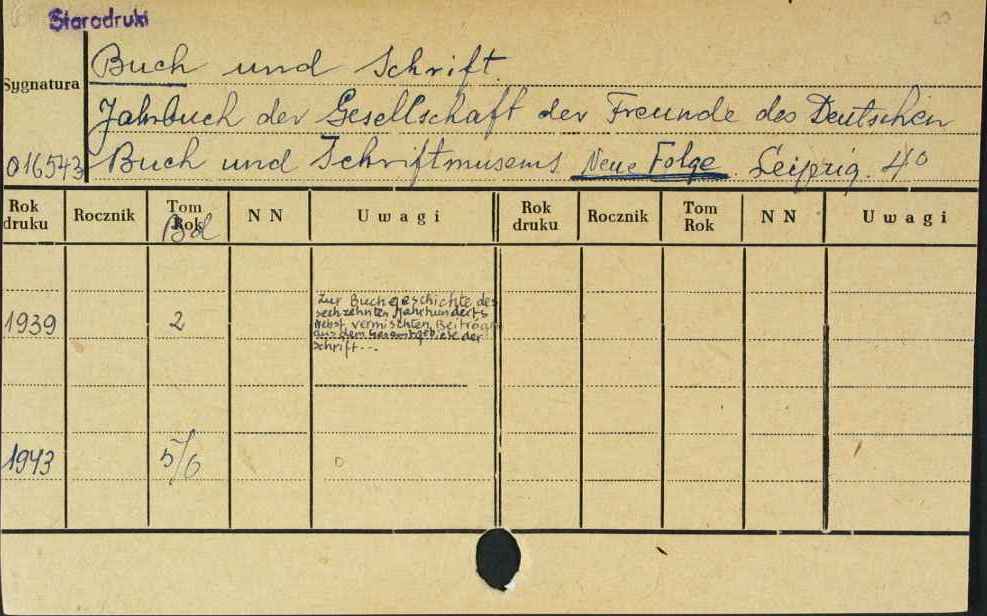 Starodruki
Buch und Schrift
Sygnatura
Jahrbuch der Gesellschaft der Freunde des Deutschen
016543 Buch und Schriftmuseums Neue Folge. Leipzig. 4°
Rok druku Rocznik Tom Rok NN Uwagi Rok druku Rocznik Tom Rok NN Uwagi
Bd
Zur Buchgeschichte des
sechzehnten Jahrhunderts
1939 2 Nebst vermischten Beiträgen
aus dem Gesamtgebiete der
Schrift...
1943 5/6